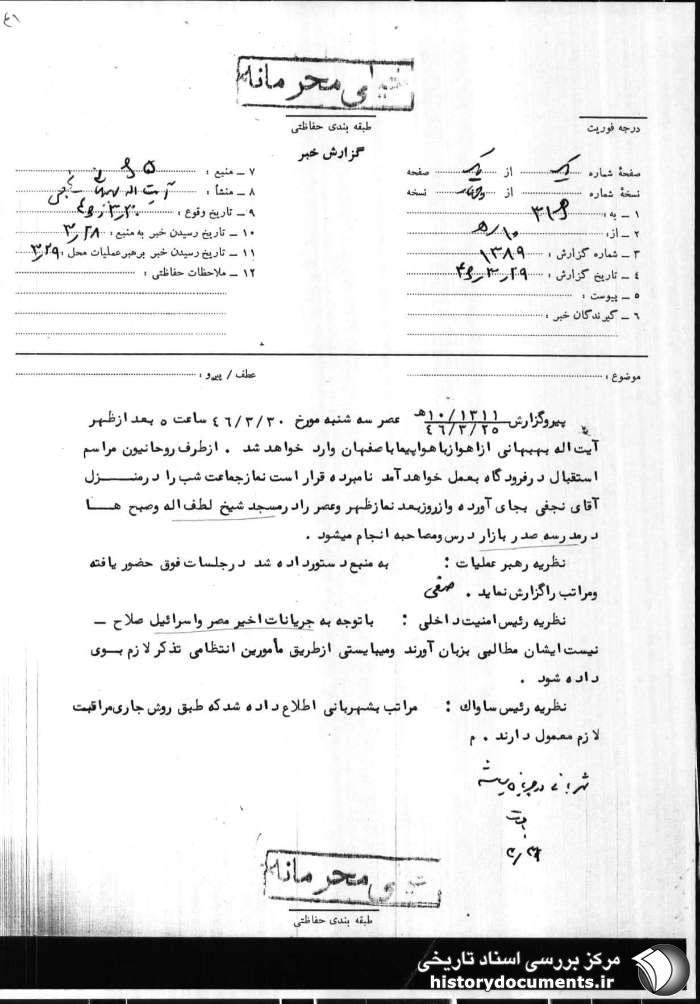 خیلی محرمانه
طبقه بندی حفاظتی
درجه فوریت
گزارش خبر
صفحهٔ شماره یک از یک صفحه
نسخهٔ شماره از نسخه
۱ ــ به : ۳۱۶
۲ ــ از : ۱۰/ه
۳ ــ شماره گزارش : ۱۳۸۹
۴ ــ تاریخ گزارش : ۴۶/۳/۲۹
۵ ــ پیوست :
۶ ــ گیرندگان خبر :
۷ ــ منبع :
۸ ــ منشأ : آیت اله
۹ ــ تاریخ وقوع : ۴۶/۳/۳۰
۱۰ ــ تاریخ رسیدن خبر به منبع : ۳/۲۸
۱۱ ــ تاریخ رسیدن خبر برهبر عملیات محل : ۳/۲۹
۱۲ ــ ملاحظات حفاظتی :
موضوع :
عطف / پیرو :
پیروگزارش ۱۰/۱۳۱۱ه‍ ۴۶/۳/۲۵ عصر سه شنبه مورخ ۴۶/۳/۳۰ ساعت ۵ بعد ازظهر
آیت اله بهبهانی ازاهوازباهواپیما باصفهان وارد خواهد شد . ازطرف روحانیون مراسم
استقبال درفرودگاه بعمل خواهد آمد نامبرده قرار است نمازجماعت شب را درمنزل
آقای نجفی بجای آورده وازروزبعد نمازظهر وعصر رادرمسجد شیخ لطف اله وصبح ها
درمدرسه صدر بازار درس ومصاحبه انجام میشود .
نظریه رهبر عملیات : به منبع دستورداده شد درجلسات فوق حضور یافته
ومراتب راگزارش نماید . صفی
نظریه رئیس امنیت داخلی : باتوجه به جریانات اخیر مصر واسرائیل صلاح ــ
نیست ایشان مطالبی بزبان آورند ومیبایستی ازطریق مأمورین انتظامی تذکر لازم بوی
داده شود .
نظریه رئیس ساواک : مراتب بشهربانی اطلاع داده شد که طبق روش جاری مراقبت
لازم معمول دارند . م
خیلی محرمانه
طبقه بندی حفاظتی
مرکز بررسی اسناد تاریخی
historydocuments.ir